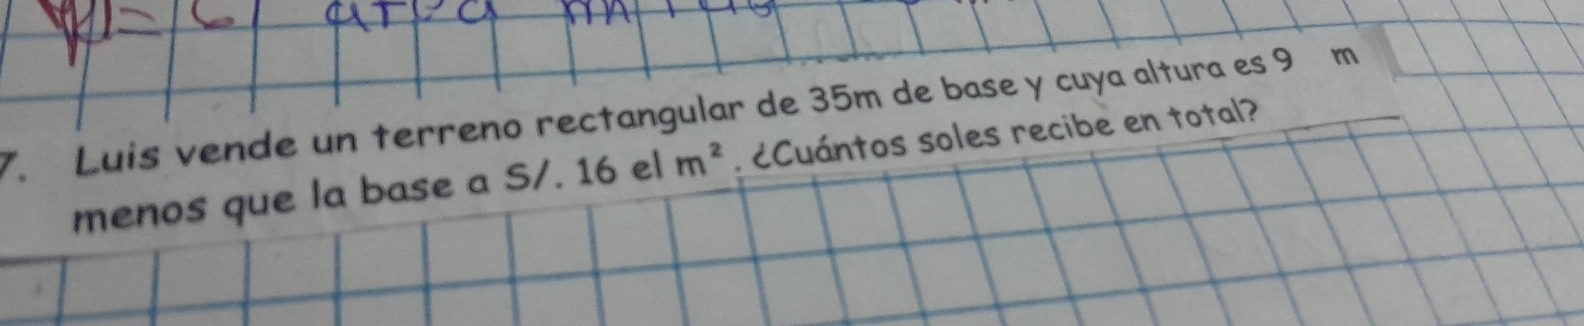 7. Luis vende un terreno rectangular de 35m de base y cuya altura es 9 m
menos que la base a S/. 16 el m². ¿Cuántos soles recibe en total?